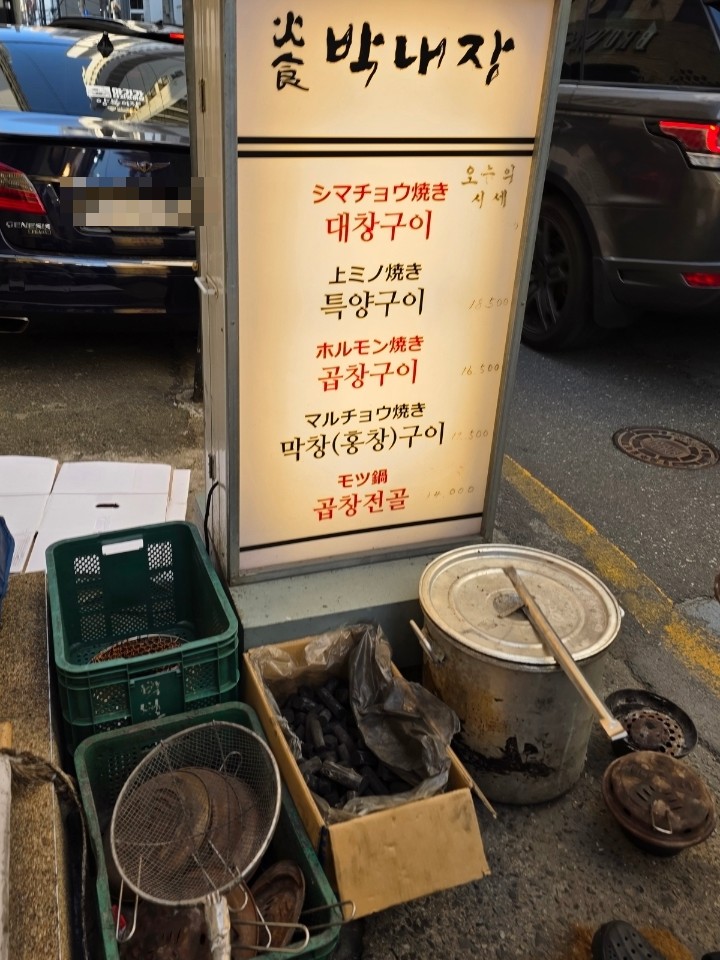 火食 박내장
シマチョウ焼き
오늘의
시세
대창구이
上ミノ焼き
특양구이 18.500
ホルモン焼き
곱창구이 16.500
マルチョウ焼き
막창(홍창)구이
モツ鍋
곱창전골
GENESIS